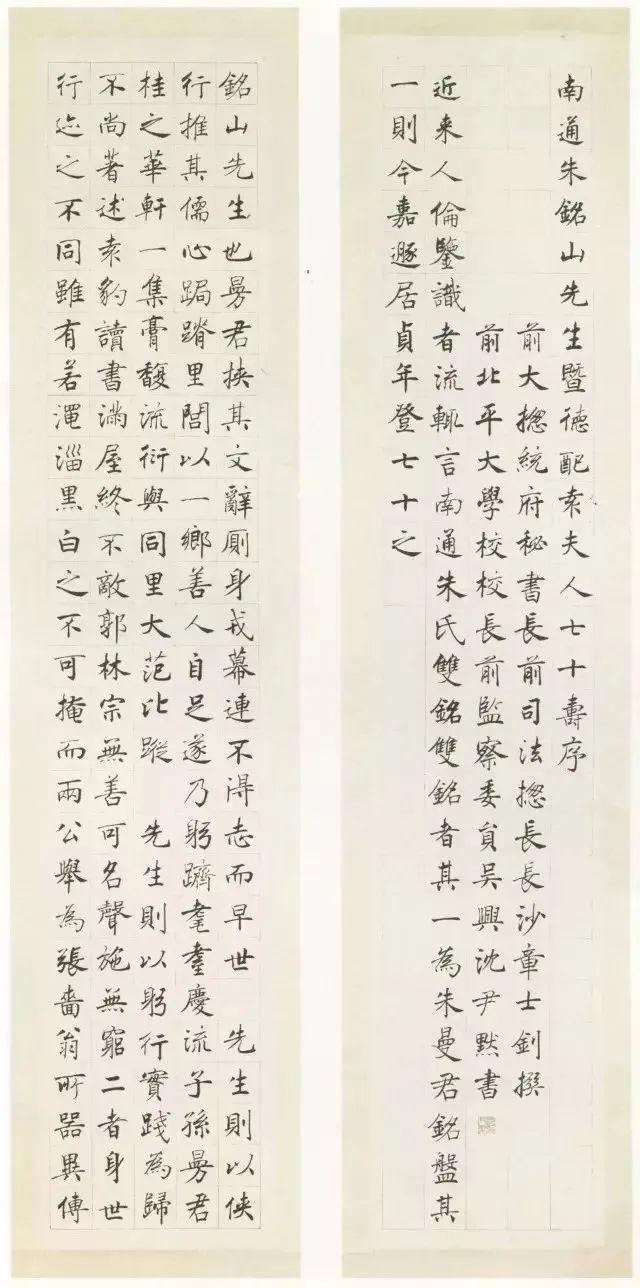 南通朱銘山先生暨德配袁夫人七十壽序
前大摠統府秘書長前司法摠長長沙章士釗撰
前北平大學校校長前監察委員吳興沈尹默書
近来人倫鑒識者流輒言南通朱氏雙銘雙銘者其一為朱曼君銘盤其
一則今嘉遯居貞年登七十之
銘山先生也曼君挾其文辭廁身戎幕連不淂志而早世 先生則以俠
行推其儒心跼蹐里閭以一鄉善人自足遂乃躬躋耄耋慶流子孫曼君
桂之華軒一集膏馥流衍與同里大范比蹤 先生則以躬行實踐為歸
不尚著述袁豹讀書滿屋終不敵郭林宗無善可名聲施無窮二者身世
行迹之不同雖有若澠淄黑白之不可掩而兩公舉為張嗇翁所器異傳